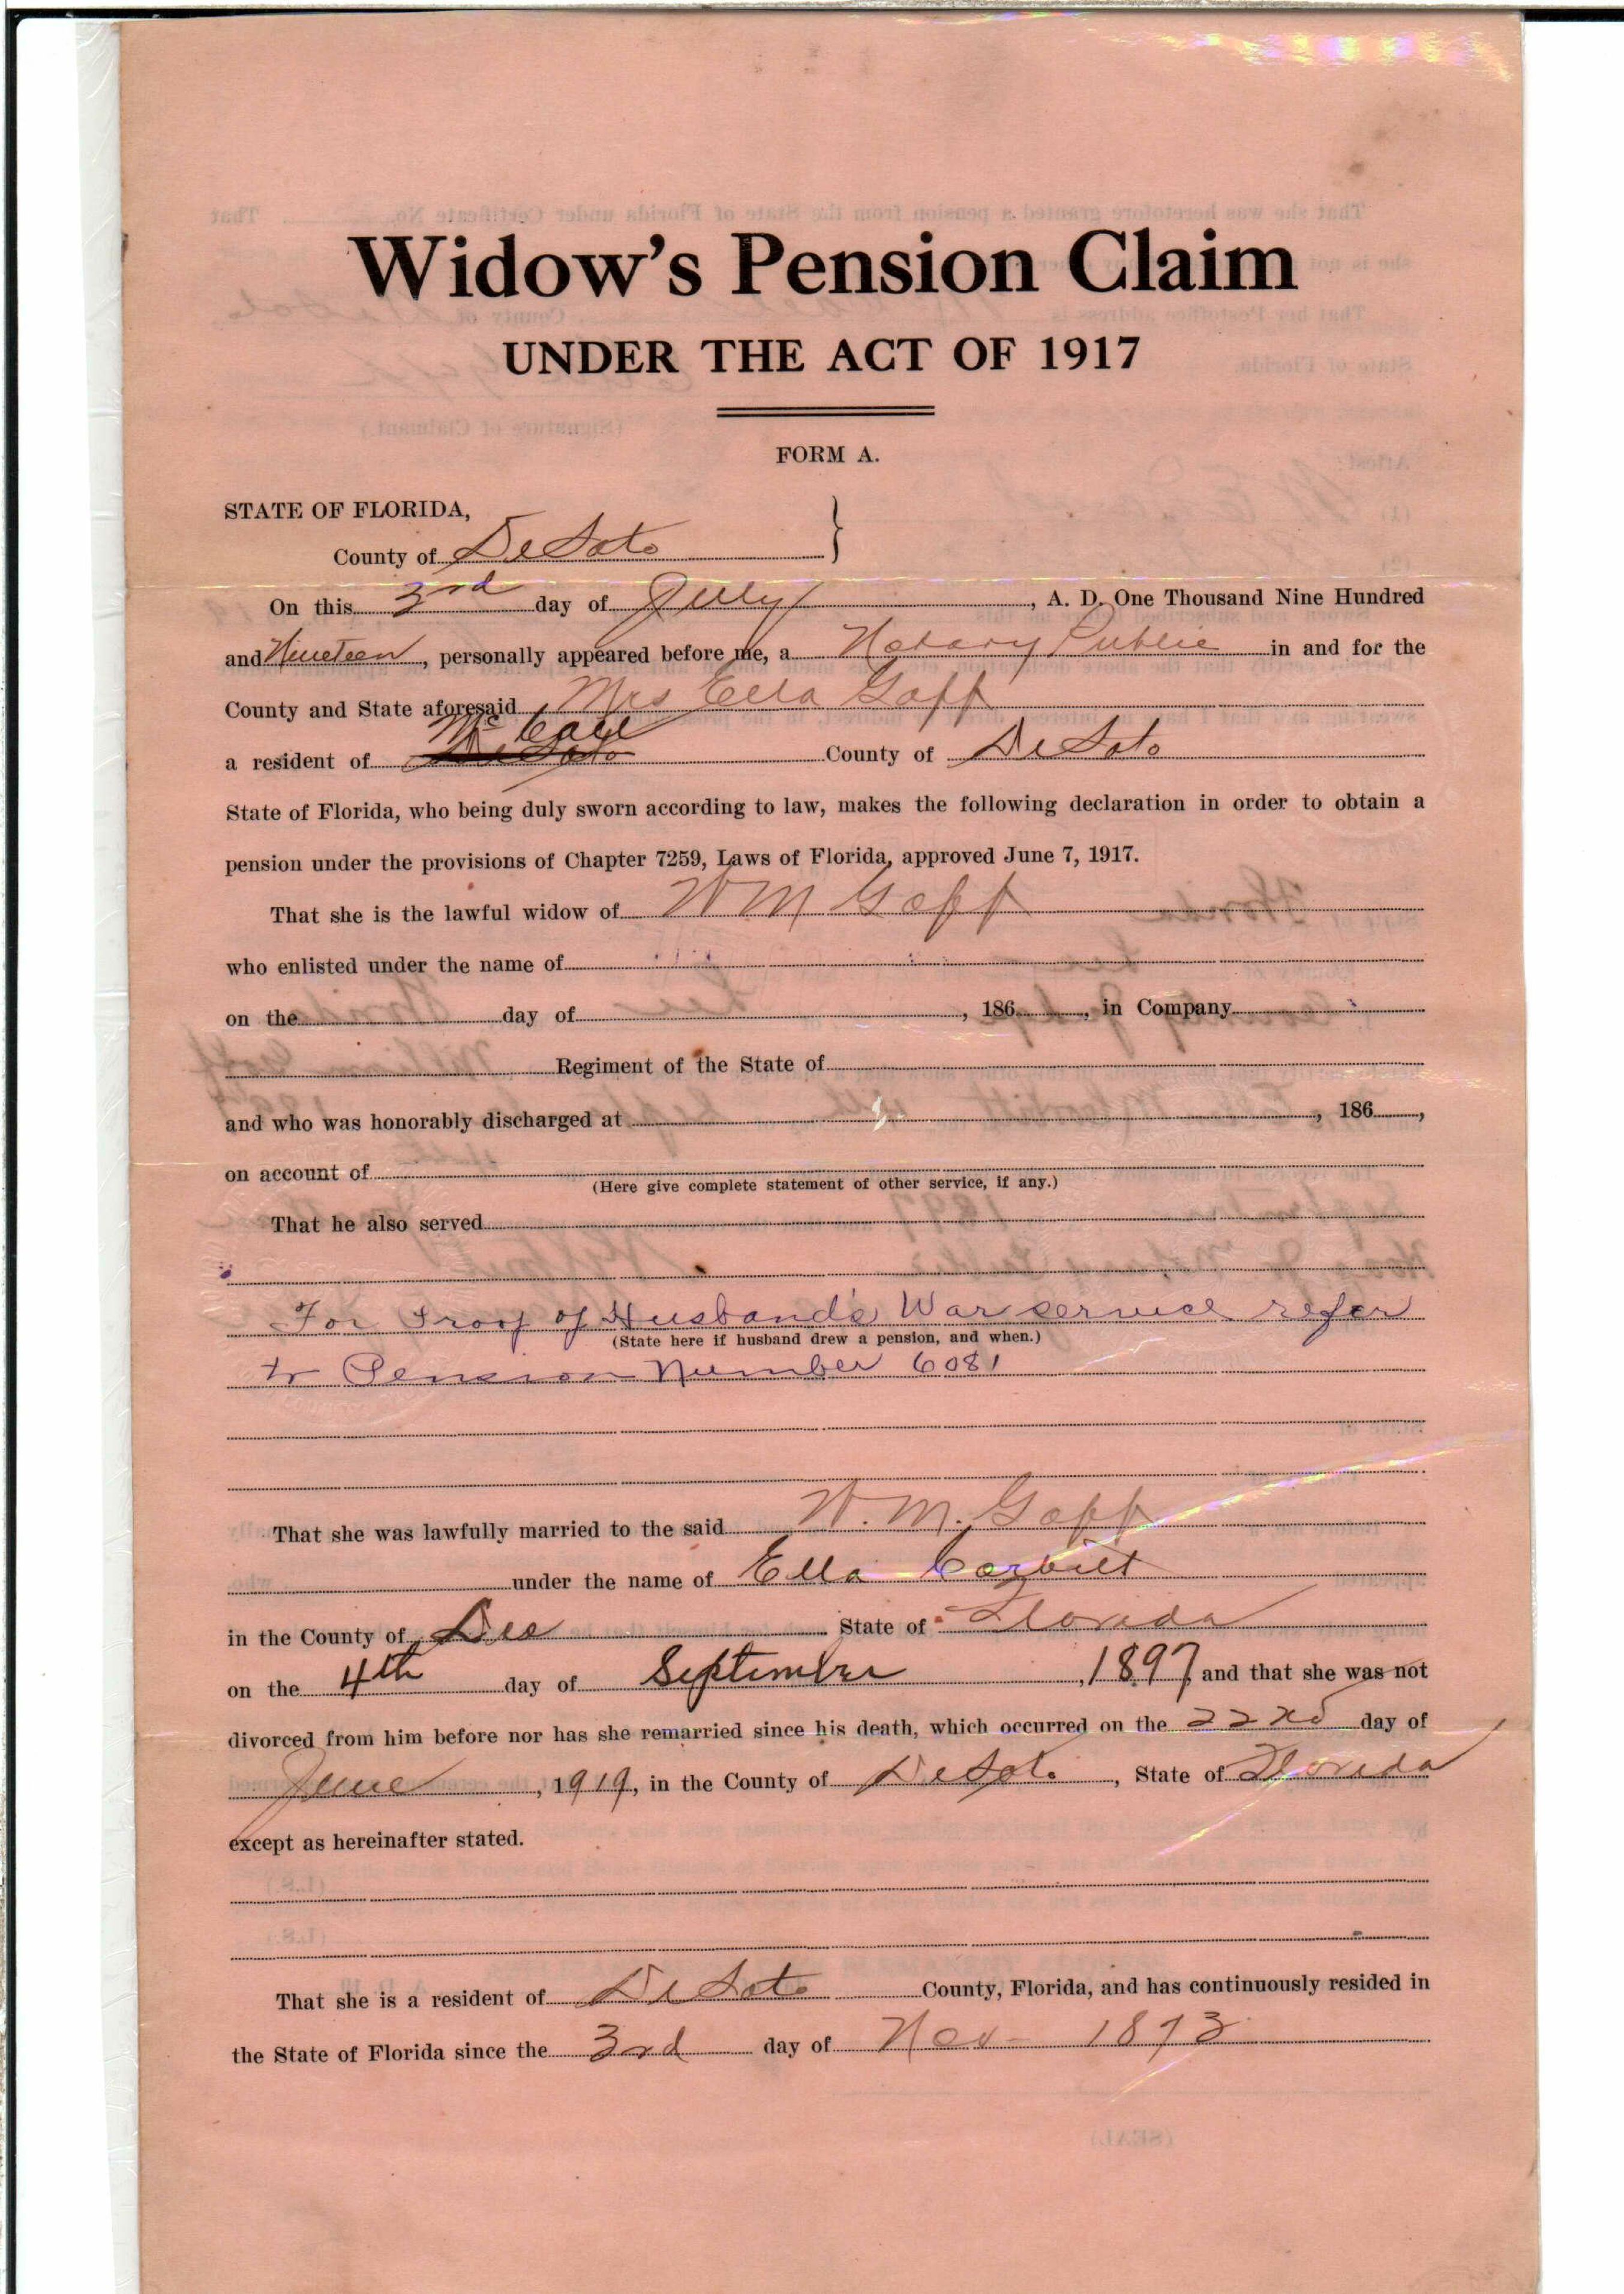 Widow's Pension Claim
UNDER THE ACT OF 1917
FORM A.
STATE OF FLORIDA,
County of DeSoto
On this 3rd day of July, A. D. One Thousand Nine Hundred
and Nineteen, personally appeared before me, a Notary Public in and for the
County and State aforesaid Mrs Ella Goff
Mc Call
a resident of DeSoto County of DeSoto
State of Florida, who being duly sworn according to law, makes the following declaration in order to obtain a
pension under the provisions of Chapter 7259, Laws of Florida, approved June 7, 1917.
That she is the lawful widow of W M Goff
who enlisted under the name of
on the day of , 186 , in Company
Regiment of the State of
and who was honorably discharged at , 186 ,
on account of
(Here give complete statement of other service, if any.)
That he also served
For Proof of Husband's War service refer
(State here if husband drew a pension, and when.)
to Pension Number 6081
That she was lawfully married to the said W. M. Goff
under the name of Ella Corbitt
in the County of Lee State of Florida
on the 4th day of September, 1897, and that she was not
divorced from him before nor has she remarried since his death, which occurred on the 22nd day of
June, 1919, in the County of DeSoto, State of Florida
except as hereinafter stated.
That she is a resident of DeSoto County, Florida, and has continuously resided in
the State of Florida since the 3rd day of Nov- 1873